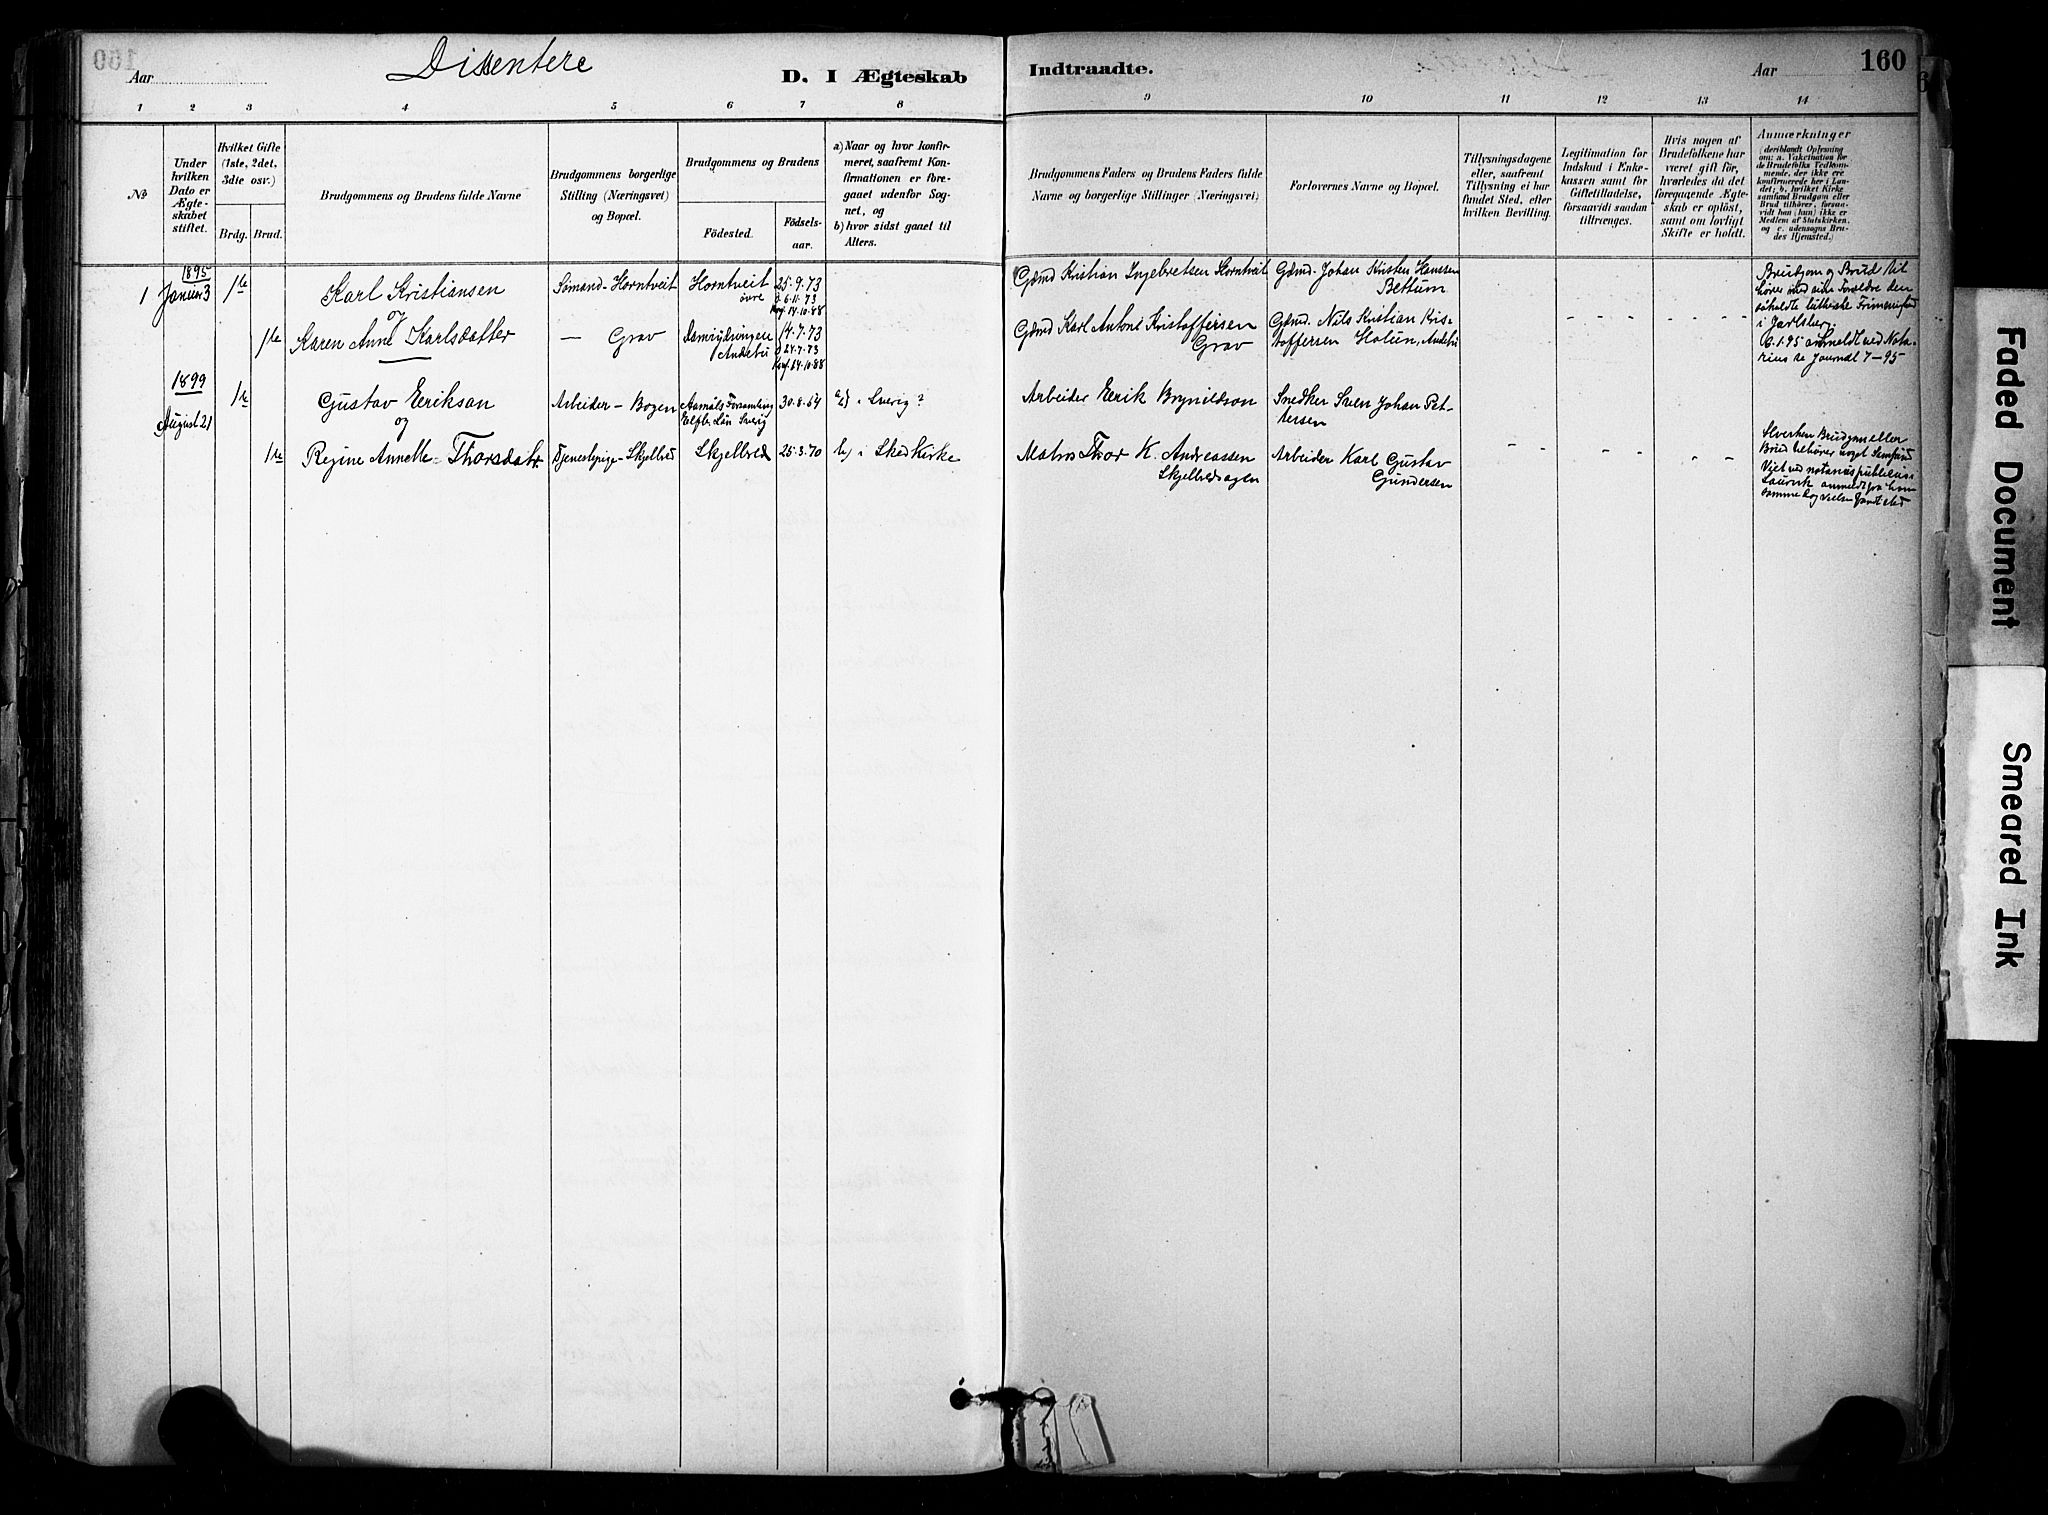 160
Dissentere
Aar
D. I Ægteskab
Indtraadte.
Aar
160
1 2 3 4 5 6 7 8 9 10 11 12 13 14
No
Under
hvilken
Dato er
Ægte-
skabet
stiftet.
Hvilket Gifte
(1ste, 2det,
3die osv.)
Brdg. Brud.
Brudgommens og Brudens fulde Navne
Brudgommens borgerlige
Stilling (Næringsvei)
og Bopæl.
Brudgommens og Brudens
Fødested.
Fødsels-
aar.
a) Naar og hvor konfir-
meret, saafremt Kon-
firmationen er fore-
gaaet udenfor Sog-
net, og
b) hvor sidst gaaet til
Alters.
Brudgommens Faders og Brudens Faders fulde
Navne og borgerlige Stillinger (Næringsvei)
Forlovernes Navne og Bopæl.
Tillysningsdagene
eller, saafremt
Tillysning ei har
fundet Sted, efter
hvilken Bevilling.
Legitimation for
Indskud i Enke-
kassen samt for
Giftetilladelse,
forsaavidt saadan
tiltrænges.
Hvis nogen af
Brudefolkene har
været gift før,
hvorledes da det
foregaaende Ægte-
skab er opløst,
samt om lovligt
Skifte er holdt.
Anmærkninger
(deriblandt Oplysning
om: a. Vakcination for
de Brudefolks Vedkom-
mende, der ikke ere
konfirmerede her i Lan-
det; b. hvilket Kirke
samfund Brudgom eller
Brud tilhører, forsaa-
vidt han (hun) ikke er
Medlem af Statskirken.
og c. udensogns Bru-
des Hjemsted.)
1895
1 Januar 3
1ste
Karl Kristiansen
Sømand - Horntveit
Horntveit
øvre
25-9-73
d. 6.11.73
Konf. 14-10-88
Gdmd Kristian Ingebretsen Horntveit
Gdmd. Johan Kristen Hanssen
Bettum
Brudgom og Brud til
hører med sine Forældre den
saakaldte lutherske Frimenighed
i Jarlsberg.
6.1.95 anmeldt ved Nota-
rius se Journal 7-95
og
1ste
Karen Anne Karlsdatter
— Grav
Andebu
14-7-73
d 24.7.73
Konf. 14-10-88
Gdmd Karl Anton Kristoffersen
Grav
Gdmd. Nils Kristian Kris-
toffersen Holun, Andebu
1899
August 21
1ste
Gustav Eerikson
Arbeider - Bogen
Aamåls Forsamling
Elfsb. Län Sverig
30-8-64
a) i Sverig?
Arbeider Eerik Brynildson
Snedker Sven Johan Pet-
tersen
og
1ste
Regine Annette Thorsdatr.
Tjenestepige - Skjelbred
Skjelbred
25-3-70
b) i Skee Kirke
Matros Thor K. Andreassen
Skjelbredsagen
Arbeider Karl Gustav
Gundersen
Hverken Brudgom eller
Brud tilhører noget Samfund
Viet ved notarius publicus i
Laurvik anmeldt fra ham
samme Dag vielsen fandt sted
Faded Document
Smeared Ink